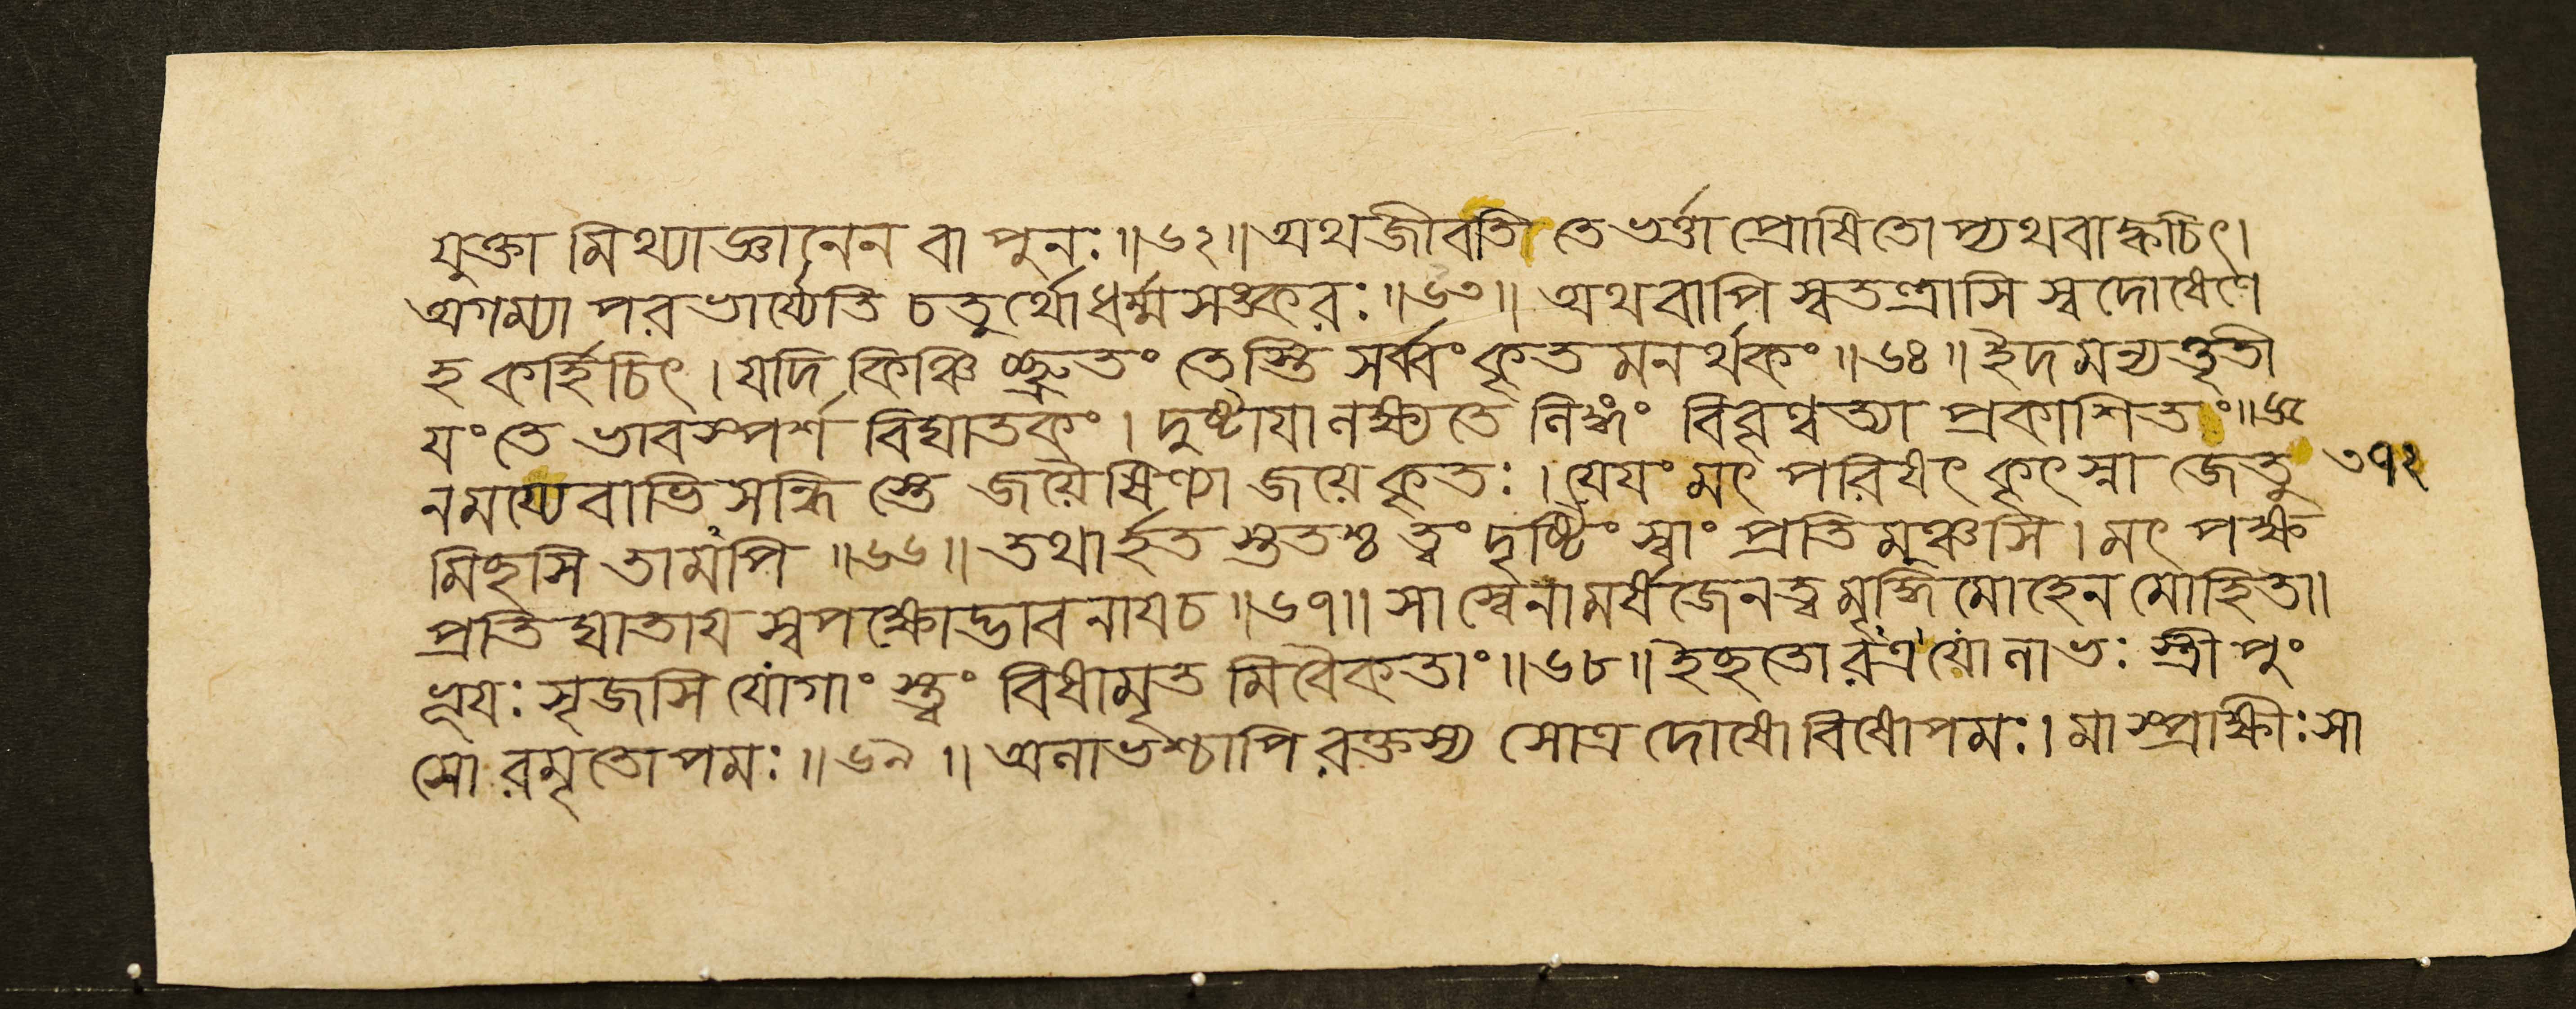 যুক্তা মিথ্যাজ্ঞানেন বা পুনঃ॥৬২॥অথজীবতি তে ভর্ত্তা প্রোষিতো প্যথবাক্বচিৎ।
অগম্যা পরভার্য্যেতি চতুর্থোধর্ম্মসঙ্করঃ॥৬৩॥ অথবাপি স্বতন্ত্রাসি স্বদোষেণে
হ কর্হিচিৎ।যদি কিঞ্চি চ্ছ্রুতং তেস্তি সর্ব্বং কৃতমনর্থকং॥৬৪॥ইদমন্যত্তৃতী
যং তে ভাবস্পর্শ বিঘাতকং। দুষ্টাযা লক্ষ্যতে লিঙ্গং বিবৃণ্বত্যা প্রকাশিতং॥৬৫
নময্যেবাভিসন্ধি স্তে জয়ৈষিণ্যা জয়ে কৃতঃ।যেযং মৎ পরিষৎ কৃৎস্না জেতু ৩৭২
মিচ্ছসি তামপি॥৬৬॥তথার্হত স্ততশ্চ ত্বং দৃষ্টিং স্বাং প্রতিমুঞ্চসি।মৎ পক্ষ
প্রতিঘাতায স্বপক্ষোদ্ভাবনাযচ॥৬৭॥সা স্বেনামর্ষজেনত্ব মৃদ্ধিমোহেন মোহিতা।
ভূযঃ সৃজসি যোগাং স্ত্বং বিষামৃত মিবৈকতাং॥৬৮॥ইচ্ছতোরত্র যো লাভঃ স্ত্রী পুং
সো রমৃতোপমঃ॥৬৯॥অলাভশ্চাপি রক্তস্য সোত্র দোষো বিষোপমঃ।মা স্প্রাক্ষীঃসা